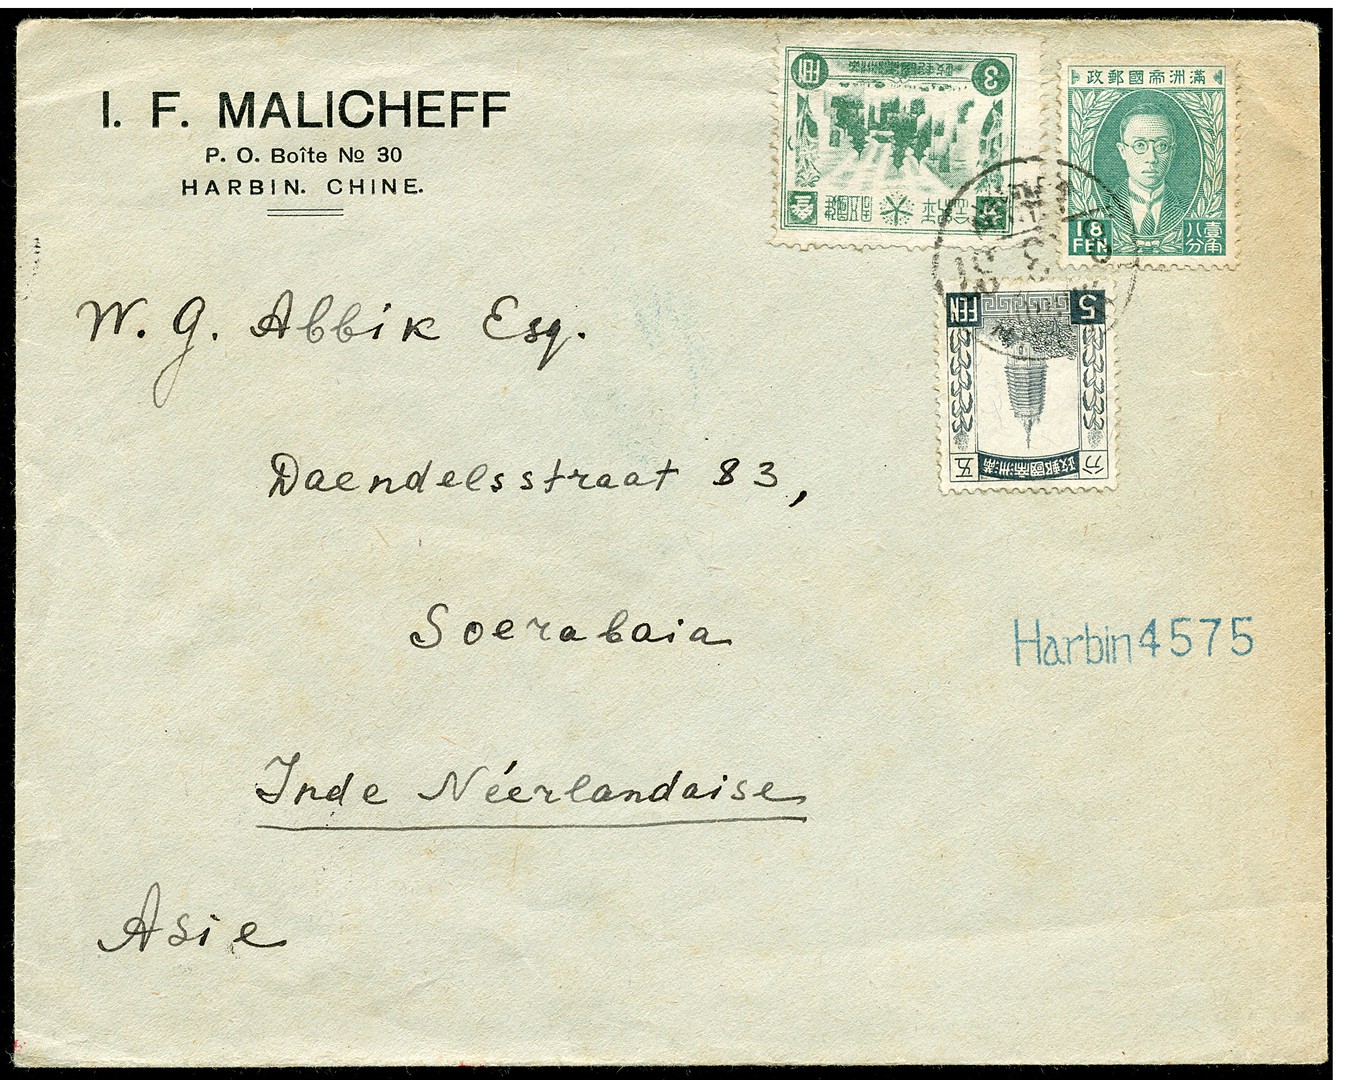 I. F. MALICHEFF
P. O. Boîte № 30
HARBIN. CHINE.
滿洲帝國郵政
18
FEN
壹角
八分
3
5
FEN
滿洲帝國郵政
五
分
W. G. Abbik Esq.
Daendelsstraat 83,
Soerabaia
Harbin 4575
Inde Néerlandaise
Asie